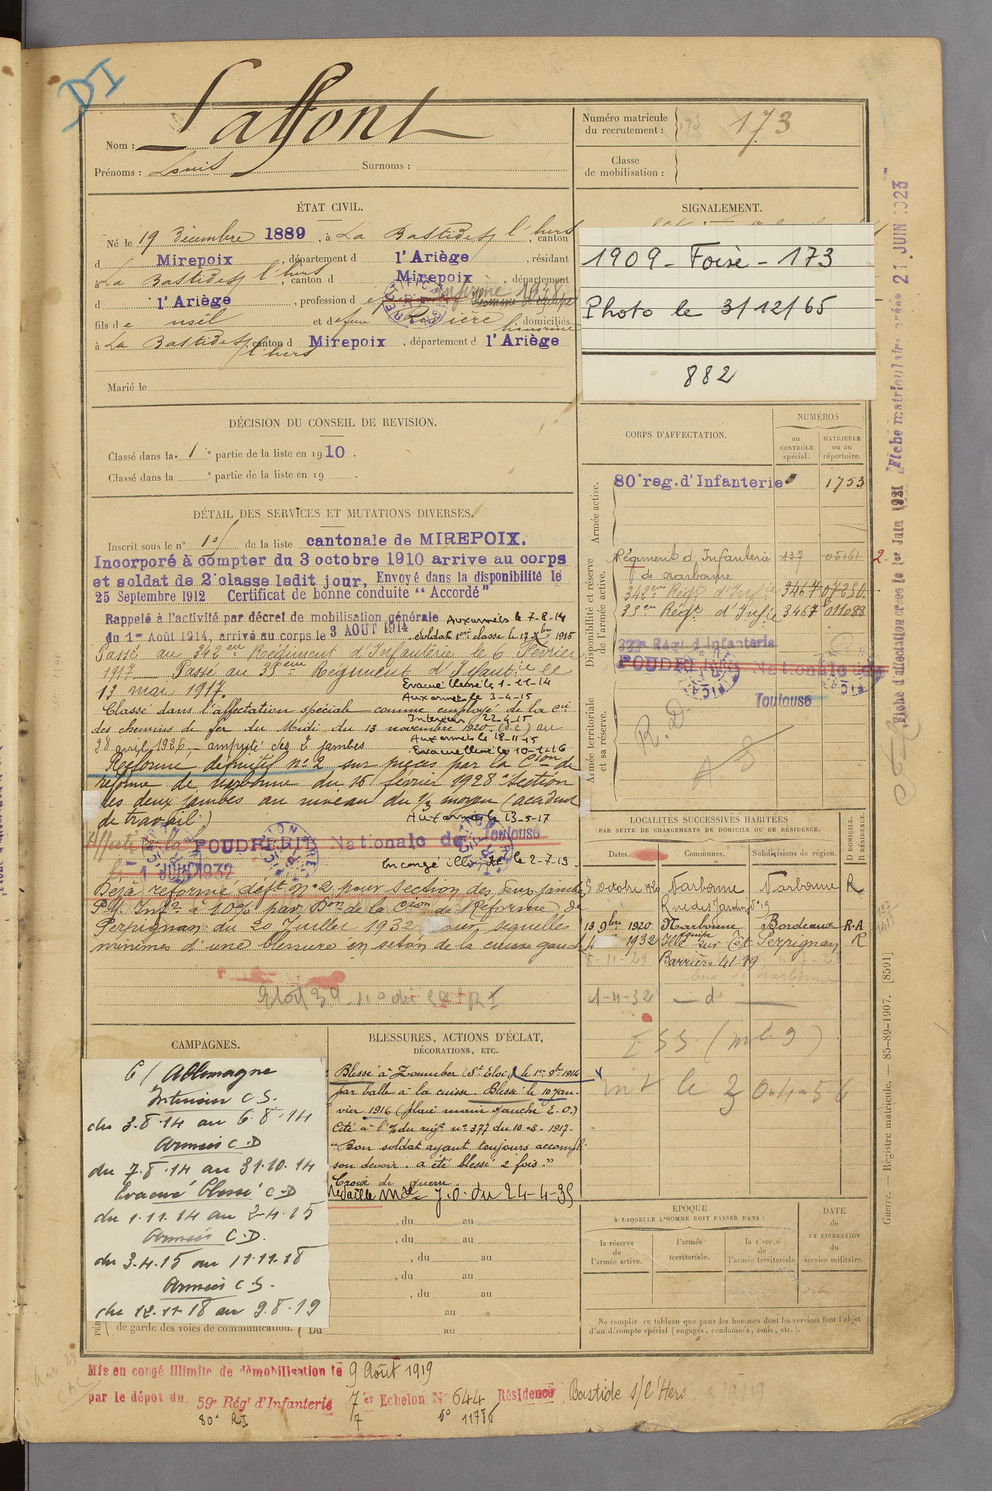 DI
Nom : Laffont
Prénoms : Louis Surnoms :
Numéro matricule du recrutement : 173
Classe de mobilisation :
ÉTAT CIVIL.
Né le 19 Décembre 1889, à La Bastide s/ l'hers, canton
d Mirepoix, département d l'Ariège, résidant
à La Bastide s/ l'hers, canton d Mirepoix, département
d l'Ariège, profession d
fils de et de Rivière domiciliés
à La Bastide s/ l'hers, canton d Mirepoix, département d l'Ariège
Marié le
SIGNALEMENT.
1909 - Foix - 173
Photo le 3/12/65
882
DÉCISION DU CONSEIL DE REVISION.
Classé dans la 1e partie de la liste en 1910.
Classé dans la e partie de la liste en 19 .
DÉTAIL DES SERVICES ET MUTATIONS DIVERSES.
Inscrit sous le n° de la liste cantonale de MIREPOIX.
Incorporé à compter du 3 octobre 1910 arrive au corps
et soldat de 2e classe ledit jour, Envoyé dans la disponibilité le
25 Septembre 1912 Certificat de bonne conduite “ Accordé ”
Rappelé à l'activité par décret de mobilisation générale Aux armées le 7-8-14
du 1er Août 1914, arrivé au corps le 3 AOUT 1914 soldat 1ère classe le 1915
Passé au 342eme Régiment d'Infanterie le 6 Février
1917 Passé au Régiment d'Infanterie le
13 mai 1917. Evacué blessé le 1-11-14
Aux armées le 3-4-15
Classé dans l'affectation spéciale comme employé de la Cie
Intérieur 22-4-15
des chemins de fer du Midi du 13 novembre 1920 au
Aux armées le 18-11-15
28 avril 1926 - amputé des 2 jambes Evacué blessé le 10-1-16
Réforme définitif n° 2 sur pièces par la Cion de
réforme de Narbonne du 15 février 1928 "Section
des deux jambes au niveau du 1/3 moyen (accident
de travail) Aux armées le 13-5-17
Affecté à la POUDRERIE Nationale de Toulouse
le 1 JUIN 1932
En congé illimité le 2-7-19
Déjà réformé déft n° 2 pour section des deux jambes
P.I. Inf à 10% par Don de la Cion de Réforme de
Perpignan du 20 Juillet 1932 pour, séquelles
minimes d'une blessure en séton de la cuisse gauche
CORPS D'AFFECTATION.
NUMÉROS
au CONTRÔLE spécial.
MATRICULE ou au répertoire.
Armée active.
80e reg. d'Infanterie 1753
Disponibilité et réserve de l'armée active.
Régiment d'Infanterie 137 05161 2.
de Narbonne
342eme Régt d'Infie 3467 07350
Régt d'Infie 3467 011082
Régt d'Infanterie
POUDRERIE Nationale de
Toulouse
Armée territoriale et sa réserve.
R. D.
LOCALITÉS SUCCESSIVES HABITÉES
PAR SUITE DE CHANGEMENTS DE DOMICILE OU DE RÉSIDENCE.
Dates. Communes. Subdivisions de région. D DOMICILE. R RÉSIDENCE.
Octobre Narbonne Narbonne R
Rue des Jardins n° 19
13 9bre 1920 Narbonne Bordeaux R-A
1932 Ille sur Têt Perpignan R
8-11-29 Barrière 41-19
1-11-32 — d° —
CAMPAGNES.
C/ Allemagne
Intérieur C.S.
du 3.8.14 au 6.8.14
Armées C.D
du 7.8.14 au 31.10.14
Evacué blessé C.D
du 1.11.14 au 2-4.15
Armées C.D.
du 3.4.15 au 11.11.18
Armées C.S.
du 12.11.18 au 9.8.19
de garde des voies de communication. (Du
BLESSURES, ACTIONS D'ÉCLAT,
DÉCORATIONS, ETC.
Blessé à Zonnebec (St Eloi) le 1er 9bre 1914
par balle à la cuisse. Blessé le 10 jan-
vier 1916 (plaie main gauche E.O.)
Cité à l'O/ du régt n° 377 du 10-8-1917.
"Bon soldat ayant toujours accompli
son devoir. a été blessé 2 fois."
Croix de guerre
Médaille Mre J.O. du 24-4-35
, du au
, du au
, du au
, du au
, du au
au
au
ÉPOQUE
À LAQUELLE L'HOMME DOIT PASSER DANS :
la réserve de l'armée active.
l'armée territoriale.
la réserve de l'armée territoriale
DATE de LA LIBÉRATION du service militaire.
Ne remplir ce tableau que pour les hommes dont les services font l'objet
d'un décompte spécial (engagés, condamnés, omis, etc.).
Mis en congé illimité de démobilisation le 9 Août 1919
par le dépôt du 59e Régt d'Infanterie 7 er Echelon N° 644 Résidence Bastide s/l'Hers
80e RI
Guerre. — Registre matricule. — 85-89-1907. [8591]
Fiche matriculaire créée 21 JUIN 1923
Fiche d'affectation créée le 1er Juin 1921